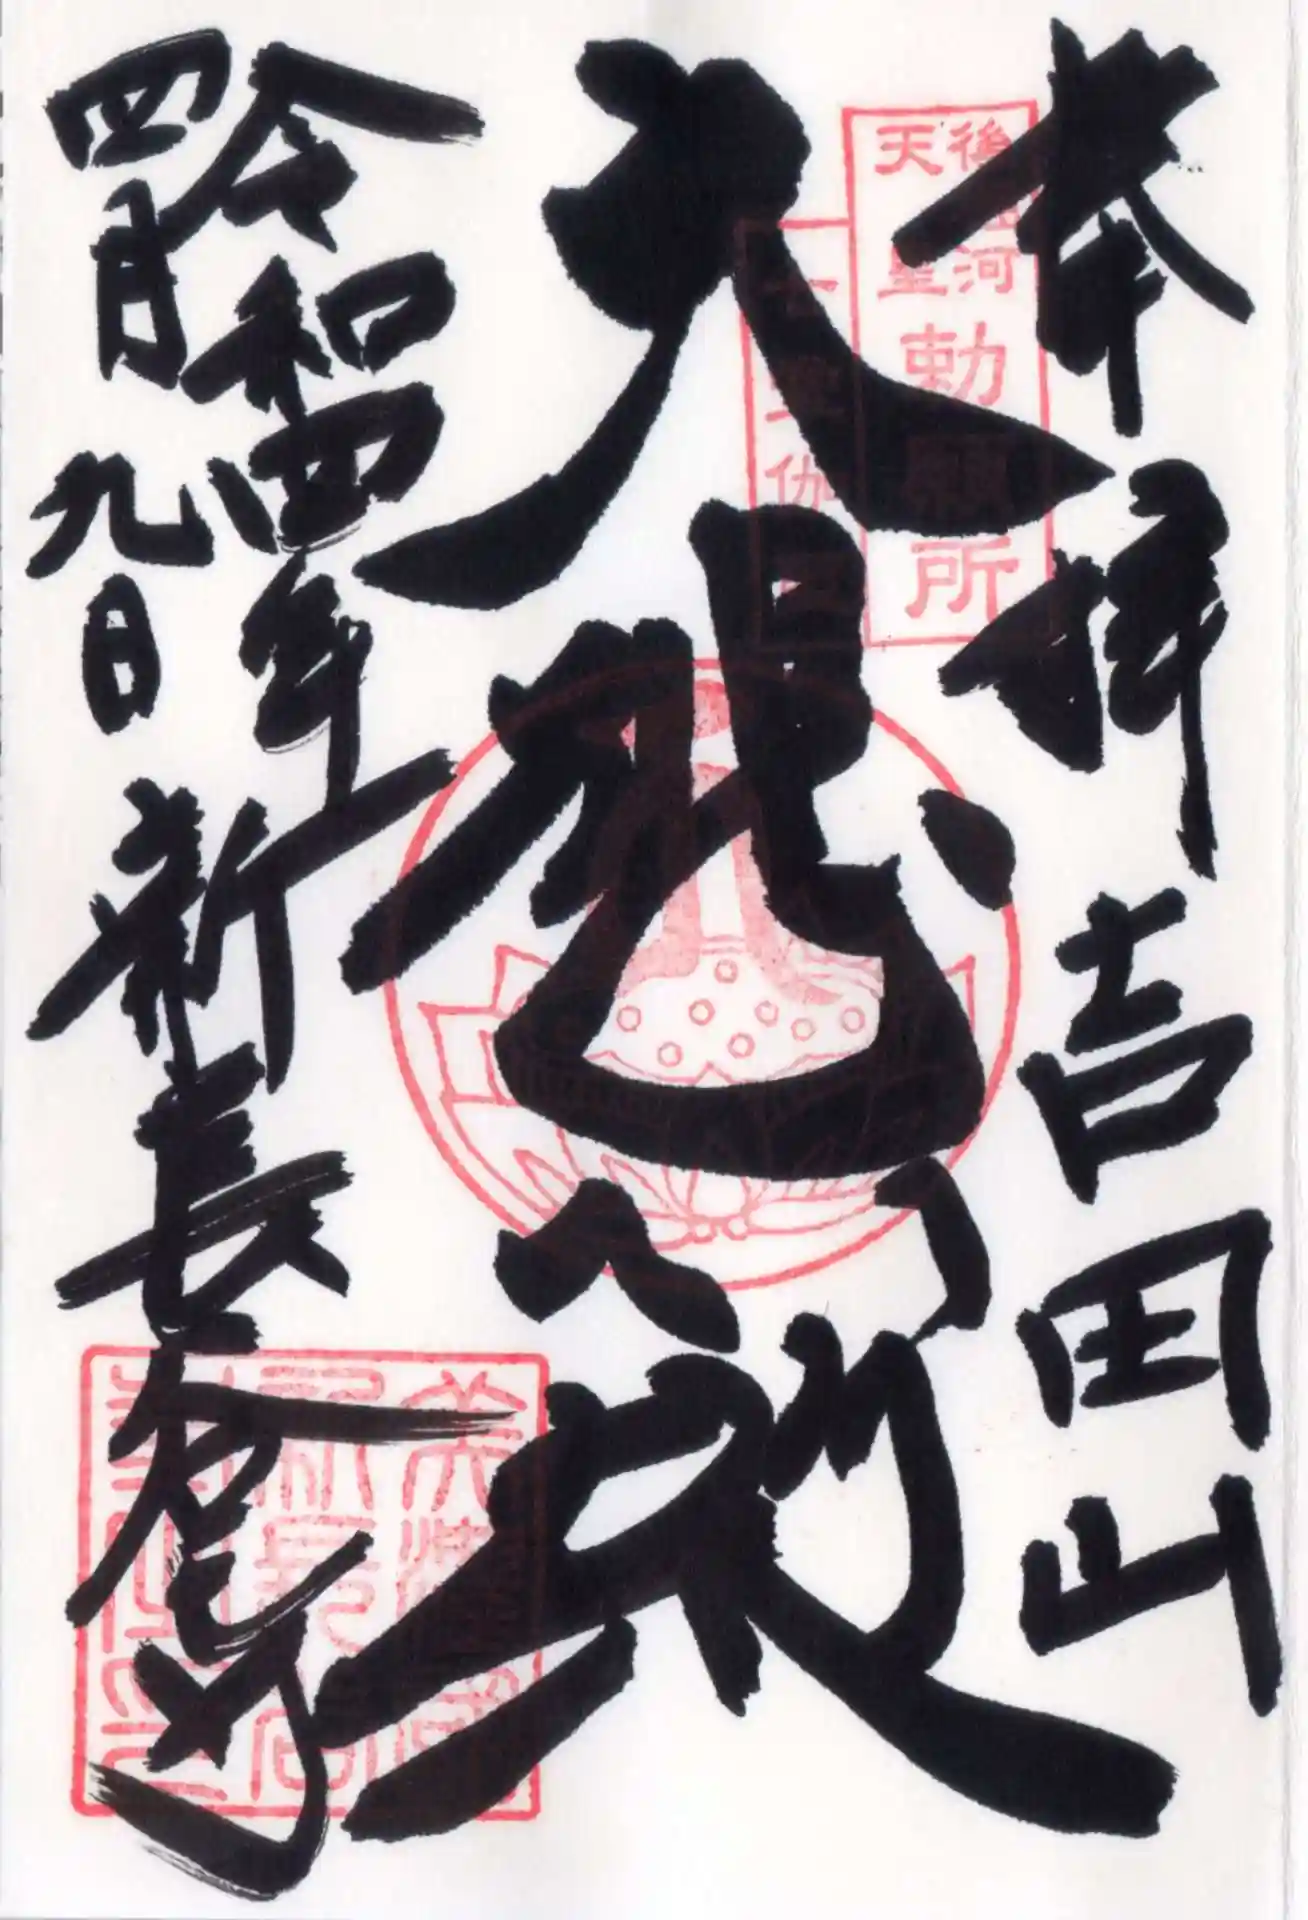 奉拝 吉田山
後堀河
天皇 勅願所
大悲殿
令和四年
四月九日
新長谷寺